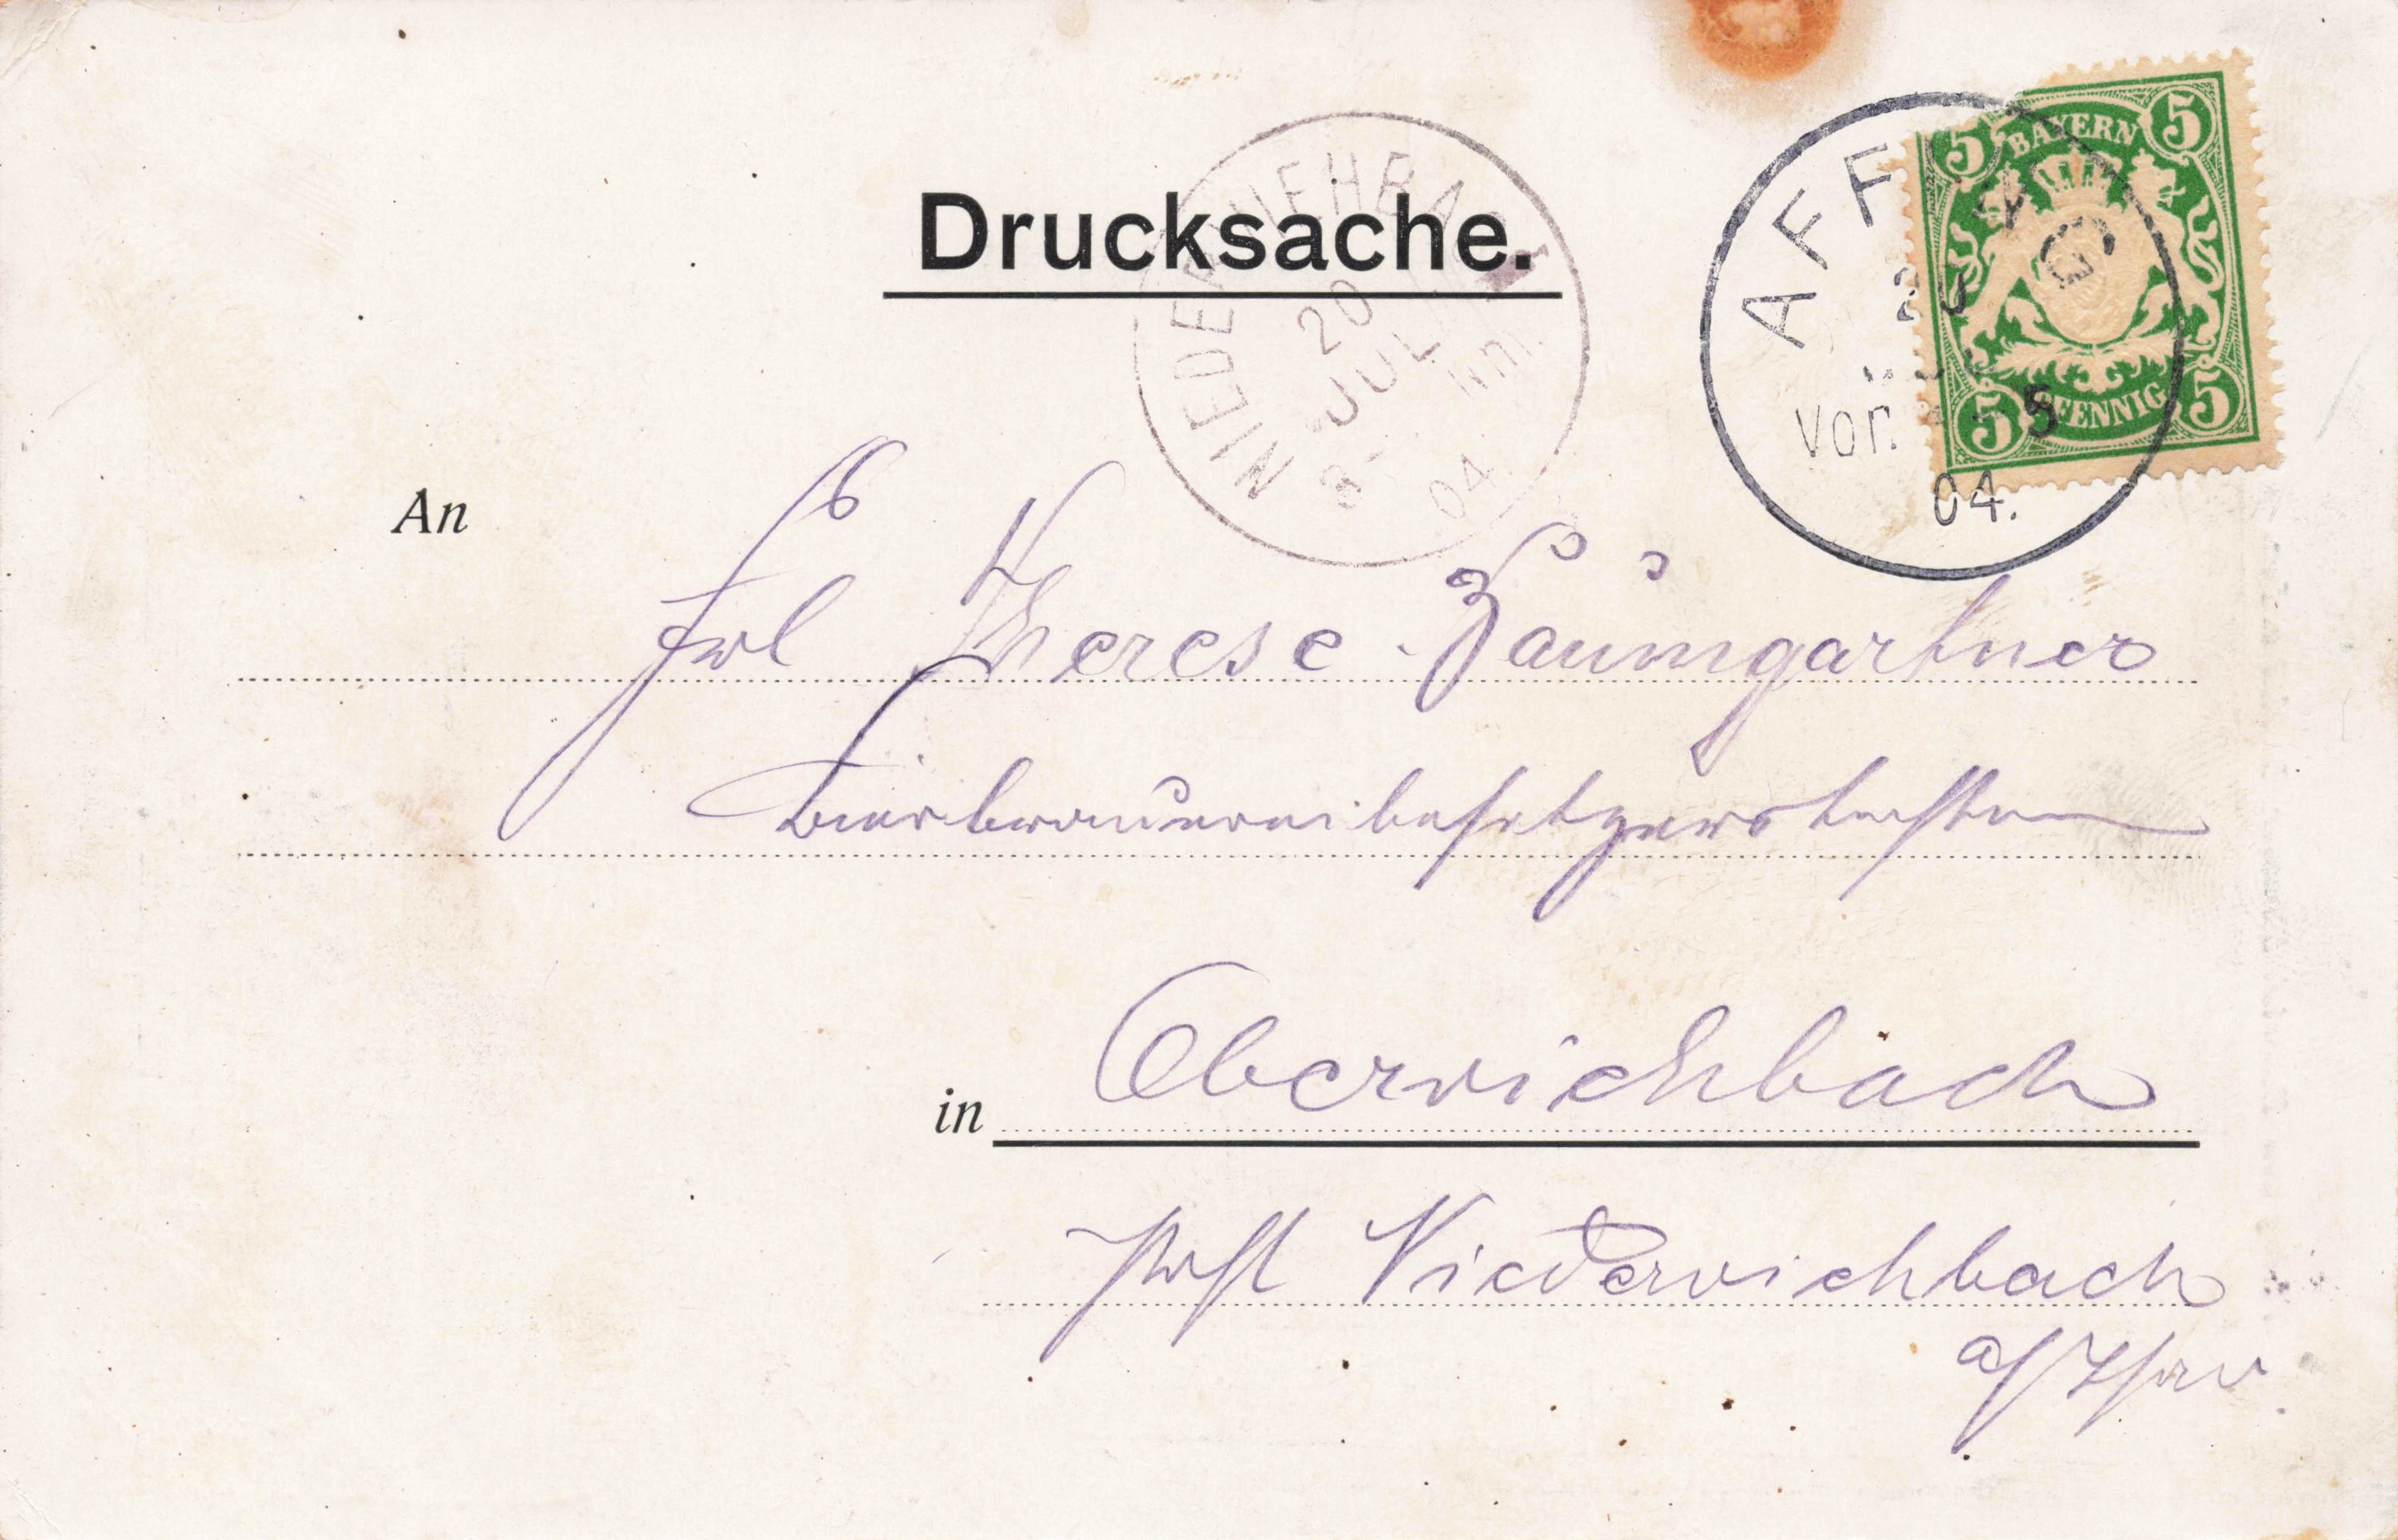 Drucksache.
NIEDERVIEHBACH
20
JUL
8-
04
AFFING
20
JUL
Vor. 5
04.
BAYERN
5 5
5 5
PFENNIG
An
Frl Therese Baumgartner
Bierbrauereibesitzerstochter
in Oberviehbach
Post Niederviehbach
a/Isar